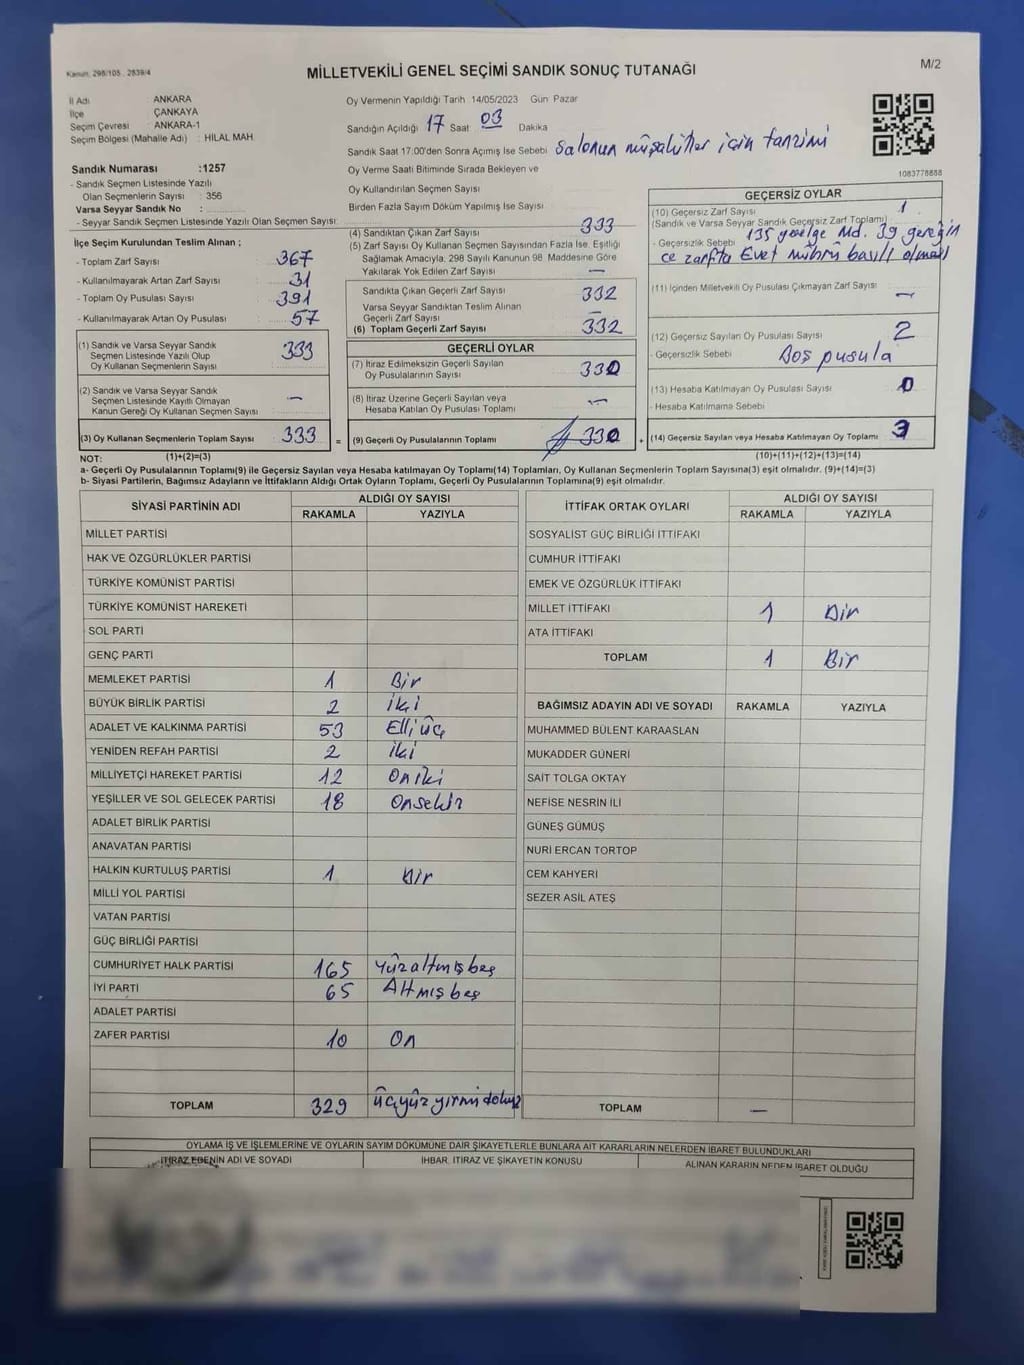 Kanun, 298/105 , 2839/4
MİLLETVEKİLİ GENEL SEÇİMİ SANDIK SONUÇ TUTANAĞI
M/2
İl Adı : ANKARA
İlçe ÇANKAYA
Seçim Çevresi : ANKARA-1
Seçim Bölgesi (Mahalle Adı) : HİLAL MAH.
Sandık Numarası :1257
- Sandık Seçmen Listesinde Yazılı
Olan Seçmenlerin Sayısı : 356
Varsa Seyyar Sandık No :
- Seyyar Sandık Seçmen Listesinde Yazılı Olan Seçmen Sayısı:
Oy Vermenin Yapıldığı Tarih 14/05/2023 Gün Pazar
Sandığın Açıldığı 17 Saat 03 Dakika
Sandık Saat 17:00'den Sonra Açımış İse Sebebi Salonun müşahitler için tanzimi
Oy Verme Saati Bitiminde Sırada Bekleyen ve
Oy Kullandırılan Seçmen Sayısı
Birden Fazla Sayım Döküm Yapılmış İse Sayısı
1083778888
İlçe Seçim Kurulundan Teslim Alınan ;
- Toplam Zarf Sayısı : 367
- Kullanılmayarak Artan Zarf Sayısı : 31
- Toplam Oy Pusulası Sayısı : 391
- Kullanılmayarak Artan Oy Pusulası : 57
(1) Sandık ve Varsa Seyyar Sandık
Seçmen Listesinde Yazılı Olup
Oy Kullanan Seçmenlerin Sayısı 333
(2) Sandık ve Varsa Seyyar Sandık
Seçmen Listesinde Kayıtlı Olmayan
Kanun Gereği Oy Kullanan Seçmen Sayısı —
(3) Oy Kullanan Seçmenlerin Toplam Sayısı 333 =
(4) Sandıktan Çıkan Zarf Sayısı 333
(5) Zarf Sayısı Oy Kullanan Seçmen Sayısından Fazla İse, Eşitliği
Sağlamak Amacıyla, 298 Sayılı Kanunun 98. Maddesine Göre
Yakılarak Yok Edilen Zarf Sayısı —
Sandıkta Çıkan Geçerli Zarf Sayısı 332
Varsa Seyyar Sandıktan Teslim Alınan
Geçerli Zarf Sayısı —
(6) Toplam Geçerli Zarf Sayısı 332
GEÇERLİ OYLAR
(7) İtiraz Edilmeksizin Geçerli Sayılan
Oy Pusulalarının Sayısı 330
(8) İtiraz Üzerine Geçerli Sayılan veya
Hesaba Katılan Oy Pusulası Toplamı —
(9) Geçerli Oy Pusulalarının Toplamı 330 +
GEÇERSİZ OYLAR
(10) Geçersiz Zarf Sayısı 1
(Sandık ve Varsa Seyyar Sandık Geçersiz Zarf Toplamı)
- Geçersizlik Sebebi 135 genelge Md. 39 gereğin
ce zarfta Evet mührü basılı olması
(11) İçinden Milletvekili Oy Pusulası Çıkmayan Zarf Sayısı —
(12) Geçersiz Sayılan Oy Pusulası Sayısı 2
- Geçersizlik Sebebi Boş pusula
(13) Hesaba Katılmayan Oy Pusulası Sayısı 0
- Hesaba Katılmama Sebebi
(14) Geçersiz Sayılan veya Hesaba Katılmayan Oy Toplamı 3
NOT: (1)+(2)=(3) (10)+(11)+(12)+(13)=(14)
a- Geçerli Oy Pusulalarının Toplamı(9) ile Geçersiz Sayılan veya Hesaba katılmayan Oy Toplamı(14) Toplamları, Oy Kullanan Seçmenlerin Toplam Sayısına(3) eşit olmalıdır. (9)+(14)=(3)
b- Siyasi Partilerin, Bağımsız Adayların ve İttifakların Aldığı Ortak Oyların Toplamı, Geçerli Oy Pusulalarının Toplamına(9) eşit olmalıdır.
SİYASİ PARTİNİN ADI ALDIĞI OY SAYISI
RAKAMLA YAZIYLA
MİLLET PARTİSİ
HAK VE ÖZGÜRLÜKLER PARTİSİ
TÜRKİYE KOMÜNİST PARTİSİ
TÜRKİYE KOMÜNİST HAREKETİ
SOL PARTİ
GENÇ PARTİ
MEMLEKET PARTİSİ 1 Bir
BÜYÜK BİRLİK PARTİSİ 2 İki
ADALET VE KALKINMA PARTİSİ 53 Elliüç
YENİDEN REFAH PARTİSİ 2 iki
MİLLİYETÇİ HAREKET PARTİSİ 12 Oniki
YEŞİLLER VE SOL GELECEK PARTİSİ 18 Onsekiz
ADALET BİRLİK PARTİSİ
ANAVATAN PARTİSİ
HALKIN KURTULUŞ PARTİSİ 1 Bir
MİLLİ YOL PARTİSİ
VATAN PARTİSİ
GÜÇ BİRLİĞİ PARTİSİ
CUMHURİYET HALK PARTİSİ 165 Yüzaltmışbeş
İYİ PARTİ 65 Altmışbeş
ADALET PARTİSİ
ZAFER PARTİSİ 10 On
TOPLAM 329 üçyüzyirmidokuz
İTTİFAK ORTAK OYLARI ALDIĞI OY SAYISI
RAKAMLA YAZIYLA
SOSYALİST GÜÇ BİRLİĞİ İTTİFAKI
CUMHUR İTTİFAKI
EMEK VE ÖZGÜRLÜK İTTİFAKI
MİLLET İTTİFAKI 1 Bir
ATA İTTİFAKI
TOPLAM 1 Bir
BAĞIMSIZ ADAYIN ADI VE SOYADI RAKAMLA YAZIYLA
MUHAMMED BÜLENT KARAASLAN
MUKADDER GÜNERİ
SAİT TOLGA OKTAY
NEFİSE NESRİN İLİ
GÜNEŞ GÜMÜŞ
NURİ ERCAN TORTOP
CEM KAHYERİ
SEZER ASİL ATEŞ
TOPLAM —
OYLAMA İŞ VE İŞLEMLERİNE VE OYLARIN SAYIM DÖKÜMÜNE DAİR ŞİKAYETLERLE BUNLARA AİT KARARLARIN NELERDEN İBARET BULUNDUKLARI
İTİRAZ EDENİN ADI VE SOYADI İHBAR, İTİRAZ VE ŞİKAYETİN KONUSU ALINAN KARARIN NEDEN İBARET OLDUĞU